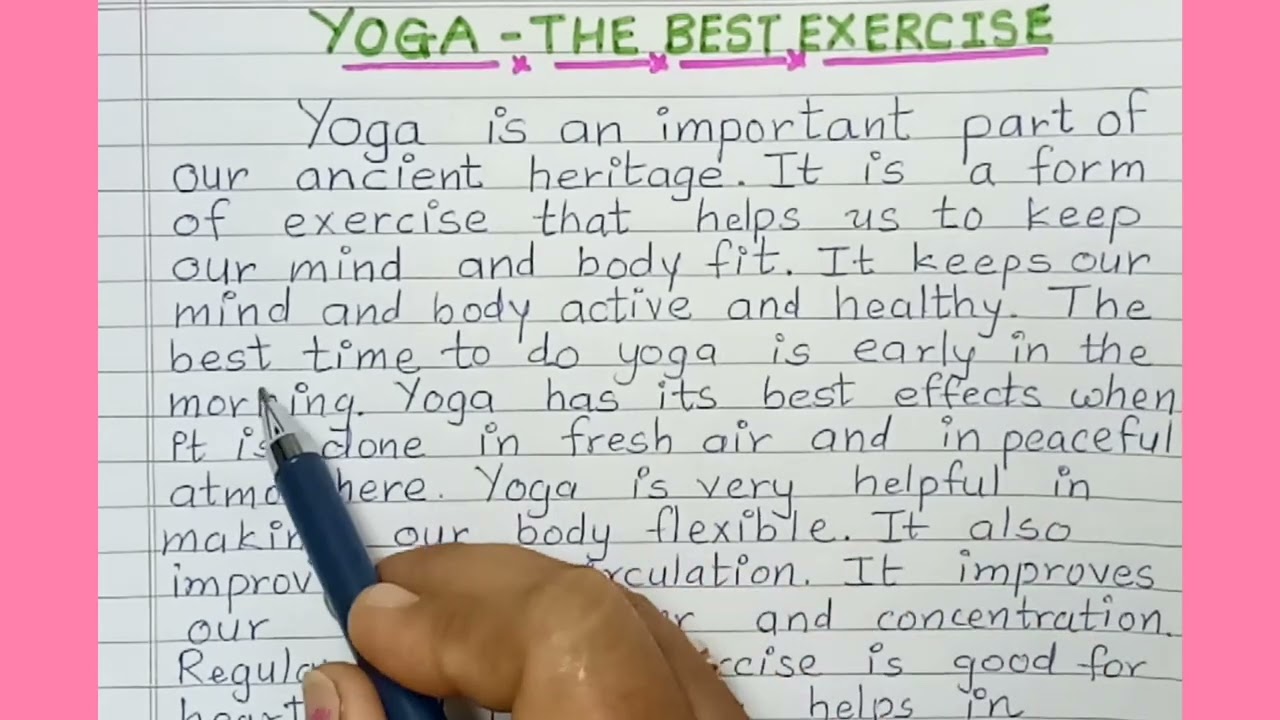 YOGA - THE BEST EXERCISE
Yoga is an important part of
our ancient heritage. It is a form
of exercise that helps us to keep
our mind and body fit. It keeps our
mind and body active and healthy. The
best time to do yoga is early in the
morning. Yoga has its best effects when
it is done in fresh air and in peaceful
Yoga is very helpful in
our body flexible. It also
It improves
our and concentration.
is good for
helps in